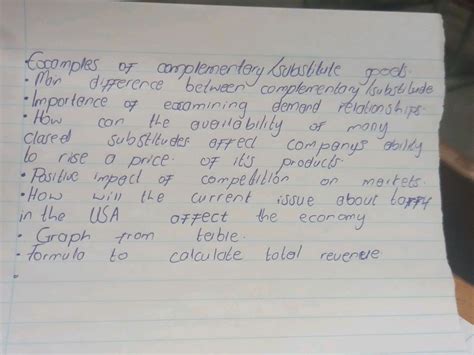 Examples of complementary/substitute goods.
• Main difference between complementary/substitude
• Importance of examining demand relationships.
• How can the availability of many
closed substitudes affect company's ability
to rise a price. of it's products.
• Positive impact of competition on markets.
• How will the current issue about tariffy
in the USA affect the economy
• Graph from table.
• formula to calculate total revenue
•